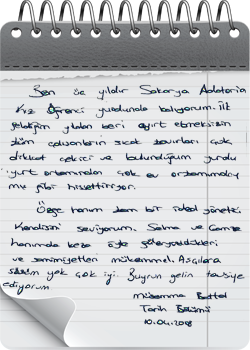 Ben üç yıldır Sakarya Adatoria
Kız Öğrenci yurdunda kalıyorum. İlk
geldiğim yıldan beri ayırt etmeksizin
tüm çalışanların sıcak tavırları çok
dikkat çekici ve bulunduğum yurdu
yurt ortamından çok ev ortamınday
mış gibi hissettiriyor.
Özge hanım tam bir ideal yönetici
Kendisini seviyorum. Selma ve Gamze
hanımında keza öyle
ve samimiyetleri mükemmel. Aşçılara
çok iyi. Buyrun gelin tavsiye
ediyorum
Müberra
Tarih Bölümü
10.04.2018